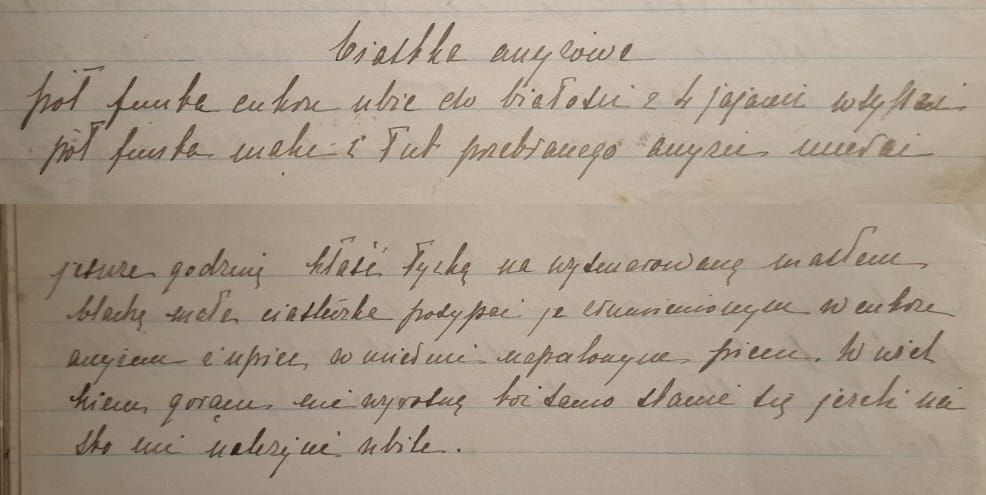 Ciastka anyżowe
pół funta cukru ubić do białości z 4 jajami wsypać
pół funta mąki i łut przebranego anyżu mieszać
jeszcze godzinę kłaść łyżką na wysmarowaną masłem
blachę małe ciasteczka posypać je w cukrze
anyżem i upiec w miernie napalonym piecu. W wiel
kiem gorącu nie wyrosną toż samo stanie się jeżeli cia
sto nie należycie ubite.